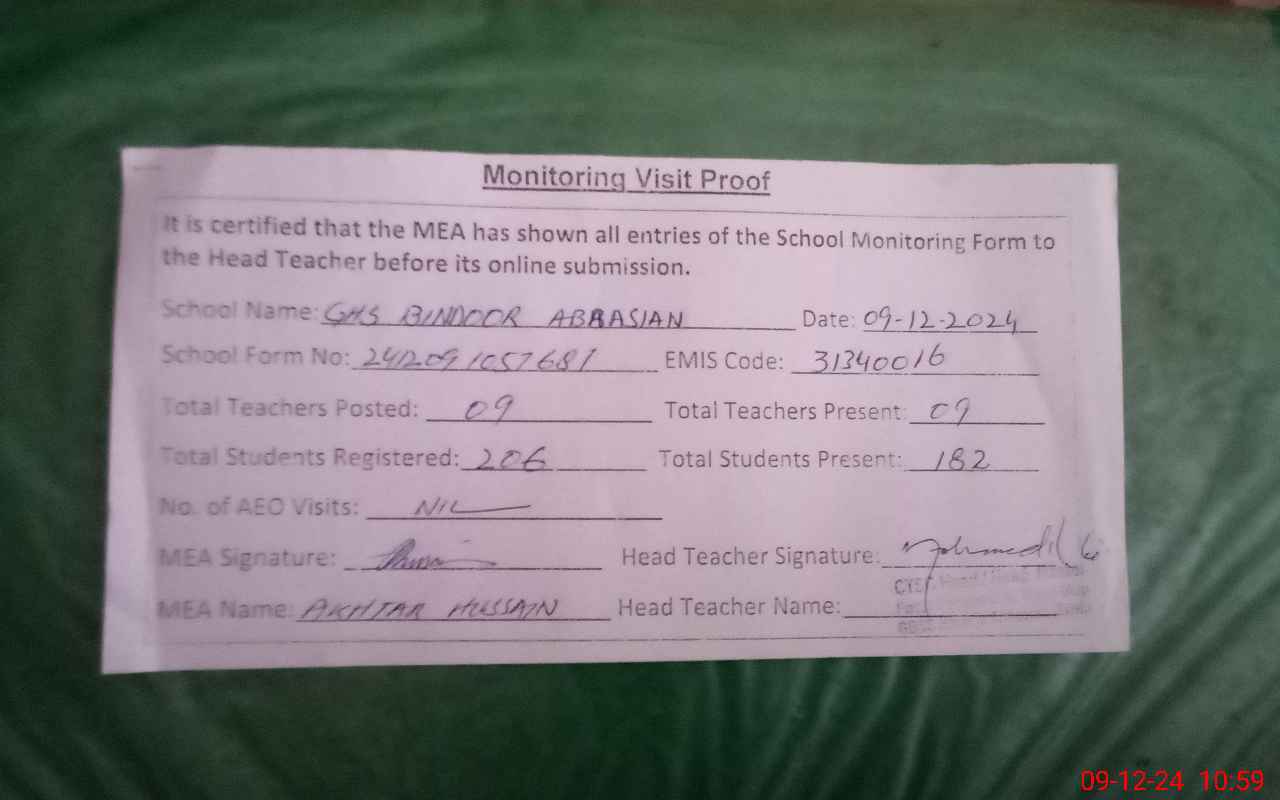 Monitoring Visit Proof
It is certified that the MEA has shown all entries of the School Monitoring Form to
the Head Teacher before its online submission.
School Name: GHS BINDOOR ABBASIAN Date: 09-12-2024
School Form No: 2412091057687 EMIS Code: 31340016
Total Teachers Posted: 09 Total Teachers Present: 09
Total Students Registered: 206 Total Students Present: 182
No. of AEO Visits: NIL
MEA Signature: Head Teacher Signature:
MEA Name: AKHTAR HUSSAIN Head Teacher Name:
09-12-24 10:59